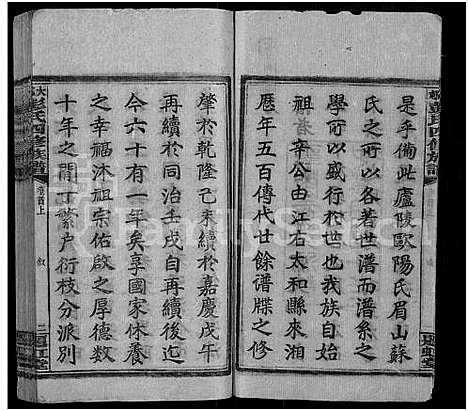 是乎備此廬陵歐陽氏眉山蘇
氏之所以有世譜而譜系之
學所以盛行於世也我族自
祖辛公由江右太和縣來湘
歷年五百傳代廿餘譜牒之修
肇於乾隆己未續於嘉慶戊午
再續於同治壬戌自再續後迄
今六十有一年矣享國家休養
之幸福沐祖宗佑啟之厚德故
十年之間丁繁户衍枝分派別
彭氏四修族譜
卷首上
叙
二
FamilySearch